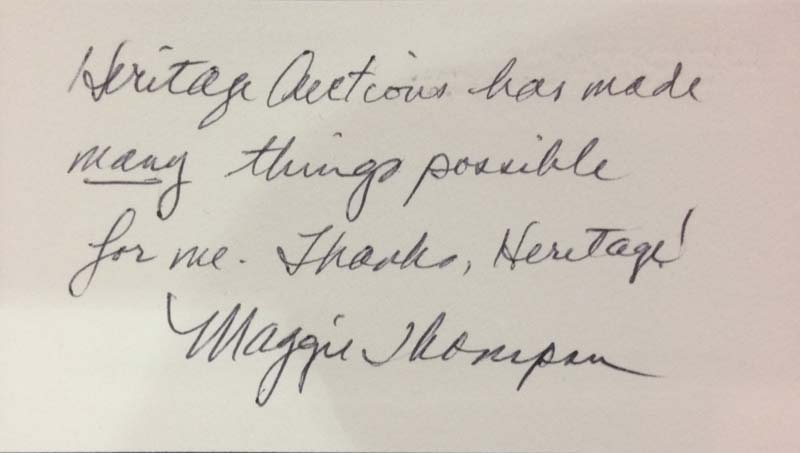 Heritage Auctions has made
many things possible
for me. Thanks, Heritage!
Maggie Thompson